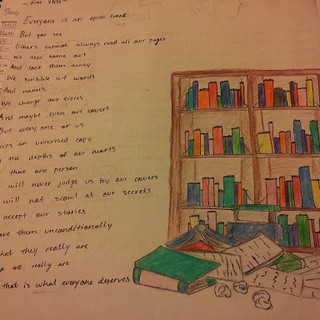 Everyone is an open book
But you see
Others cannot always read all our pages
We tear some out
And lock them away
We scribble out words
And names
We change our titles
And maybe even our covers
But every one of us
keeps an uncensored copy
the depths of our hearts
that one person
will never judge us by our covers
will not scowl at our secrets
accept our stories
love them unconditionally
what they really are
we really are
that is what everyone deserves